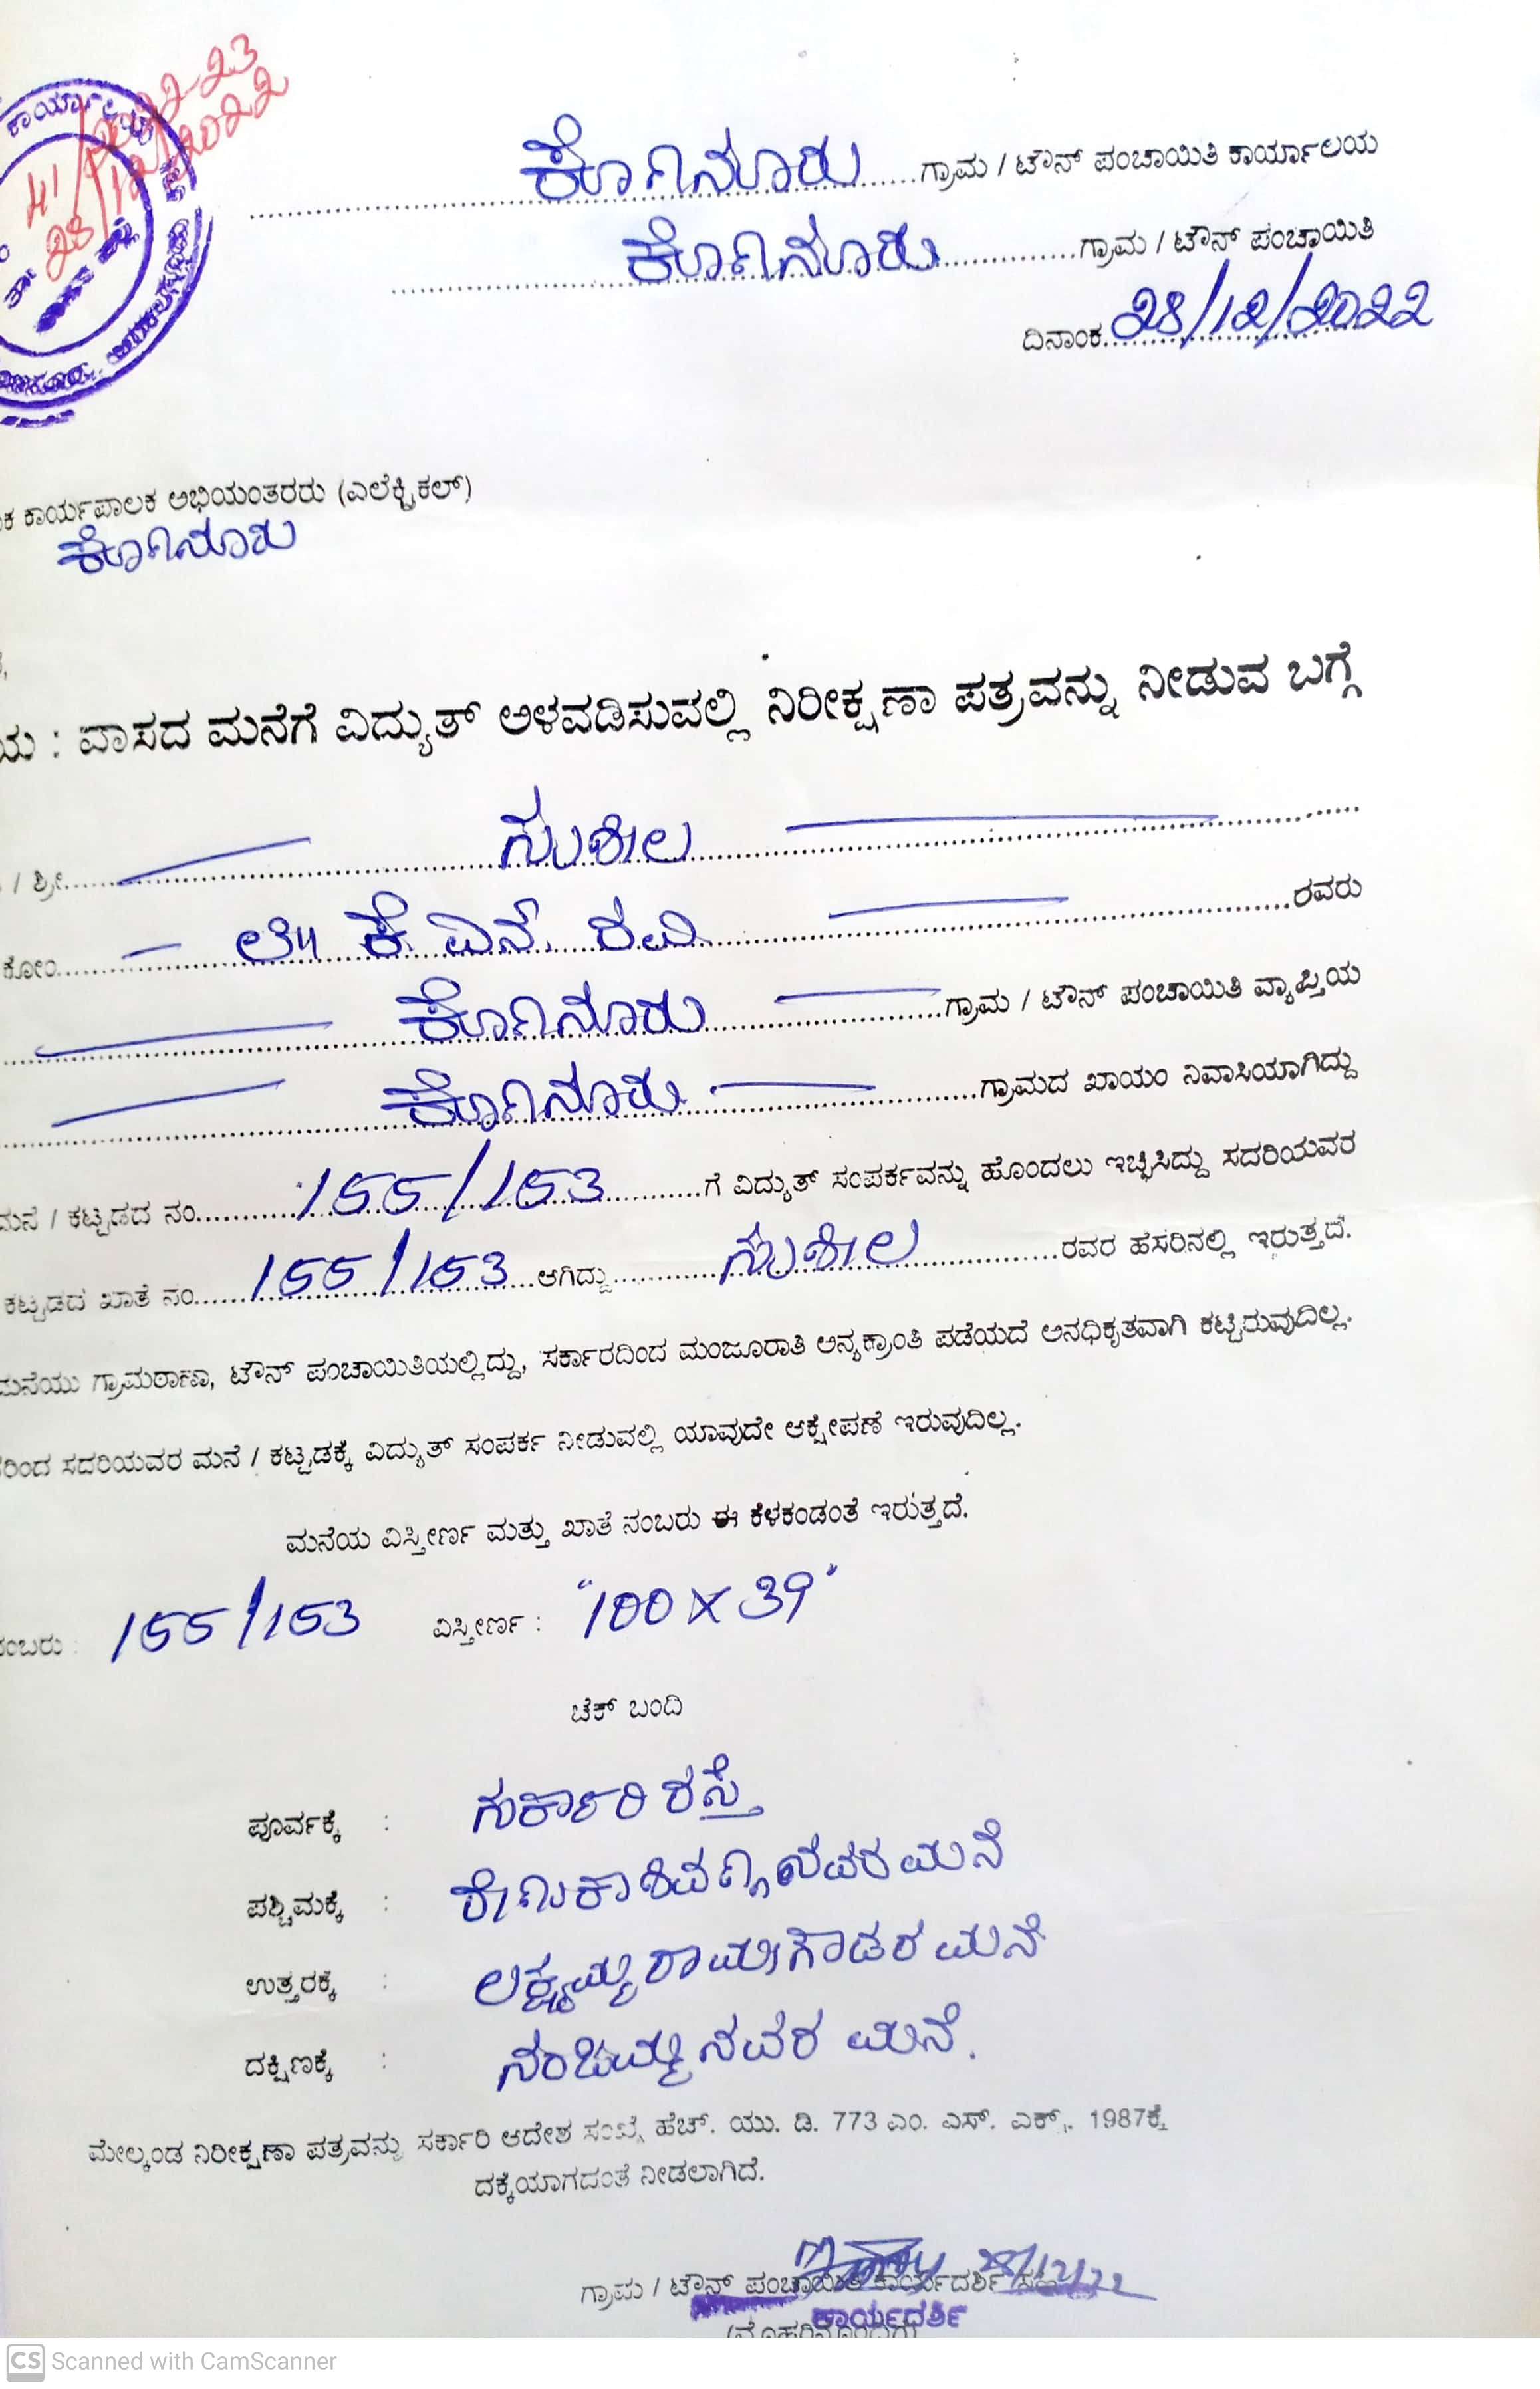 41/2022-23
28/12/2022
ಕೊಣನೂರು ಗ್ರಾಮ / ಟೌನ್ ಪಂಚಾಯಿತಿ ಕಾರ್ಯಾಲಯ
ಕೊಣನೂರು ಗ್ರಾಮ / ಟೌನ್ ಪಂಚಾಯಿತಿ
ದಿನಾಂಕ 28/12/2022
ಕ ಕಾರ್ಯಪಾಲಕ ಅಭಿಯಂತರರು (ಎಲೆಕ್ಟ್ರಿಕಲ್)
ಕೊಣನೂರು
ಯ : ವಾಸದ ಮನೆಗೆ ವಿದ್ಯುತ್ ಅಳವಡಿಸುವಲ್ಲಿ ನಿರೀಕ್ಷಣಾ ಪತ್ರವನ್ನು ನೀಡುವ ಬಗ್ಗೆ
/ ಶ್ರೀ ಸುಶೀಲ
ಕೋಂ ಲೇ॥ ಕೆ ಎನ್ ರವಿ ರವರು
ಕೊಣನೂರು ಗ್ರಾಮ / ಟೌನ್ ಪಂಚಾಯಿತಿ ವ್ಯಾಪ್ತಿಯ
ಕೊಣನೂರು ಗ್ರಾಮದ ಖಾಯಂ ನಿವಾಸಿಯಾಗಿದ್ದು
ಮನೆ / ಕಟ್ಟಡದ ನಂ 155/153 ಗೆ ವಿದ್ಯುತ್ ಸಂಪರ್ಕವನ್ನು ಹೊಂದಲು ಇಚ್ಛಿಸಿದ್ದು ಸದರಿಯವರ
ಕಟ್ಟಡದ ಖಾತೆ ನಂ 155/153 ಆಗಿದ್ದು ಸುಶೀಲ ರವರ ಹಸರಿನಲ್ಲಿ ಇರುತ್ತದೆ.
ಮನೆಯು ಗ್ರಾಮಠಾಣಾ, ಟೌನ್ ಪಂಚಾಯಿತಿಯಲ್ಲಿದ್ದು, ಸರ್ಕಾರದಿಂದ ಮಂಜೂರಾತಿ ಅನ್ಯಕ್ರಾಂತಿ ಪಡೆಯದೆ ಅನಧಿಕೃತವಾಗಿ ಕಟ್ಟಿರುವುದಿಲ್ಲ.
ರಿಂದ ಸದರಿಯವರ ಮನೆ / ಕಟ್ಟಡಕ್ಕೆ ವಿದ್ಯುತ್ ಸಂಪರ್ಕ ನೀಡುವಲ್ಲಿ ಯಾವುದೇ ಆಕ್ಷೇಪಣೆ ಇರುವುದಿಲ್ಲ.
ಮನೆಯ ವಿಸ್ತೀರ್ಣ ಮತ್ತು ಖಾತೆ ನಂಬರು ಈ ಕೆಳಕಂಡಂತೆ ಇರುತ್ತದೆ.
ನಂಬರು : 155/153 ವಿಸ್ತೀರ್ಣ : "100 X 39"
ಚೆಕ್ ಬಂದಿ
ಪೂರ್ವಕ್ಕೆ : ಸರ್ಕಾರಿ ರಸ್ತೆ
ಪಶ್ಚಿಮಕ್ಕೆ : ರೇಣುಕಾಶಿವಣ್ಣನವರ ಮನೆ
ಉತ್ತರಕ್ಕೆ : ಲಕ್ಷ್ಮಮ್ಮ ರಾಮೇಗೌಡರ ಮನೆ
ದಕ್ಷಿಣಕ್ಕೆ : ನಂಜಮ್ಮನವರ ಮನೆ.
ಮೇಲ್ಕಂಡ ನಿರೀಕ್ಷಣಾ ಪತ್ರವನ್ನು ಸರ್ಕಾರಿ ಆದೇಶ ಸಂಖ್ಯೆ ಹೆಚ್. ಯು. ಡಿ. 773 ಎಂ. ಎಸ್. ಎಕ್ಸ್. 1987ಕ್ಕೆ
ದಕ್ಕೆಯಾಗದಂತೆ ನೀಡಲಾಗಿದೆ.
ಗ್ರಾಮ / ಟೌನ್ ಪಂಚಾಯಿತಿ ಕಾರ್ಯದರ್ಶಿ ಸಹಿ
28/12/22
ಕಾರ್ಯದರ್ಶಿ
(ಮೊಹರಿನೊಂದಿಗೆ)
CS Scanned with CamScanner